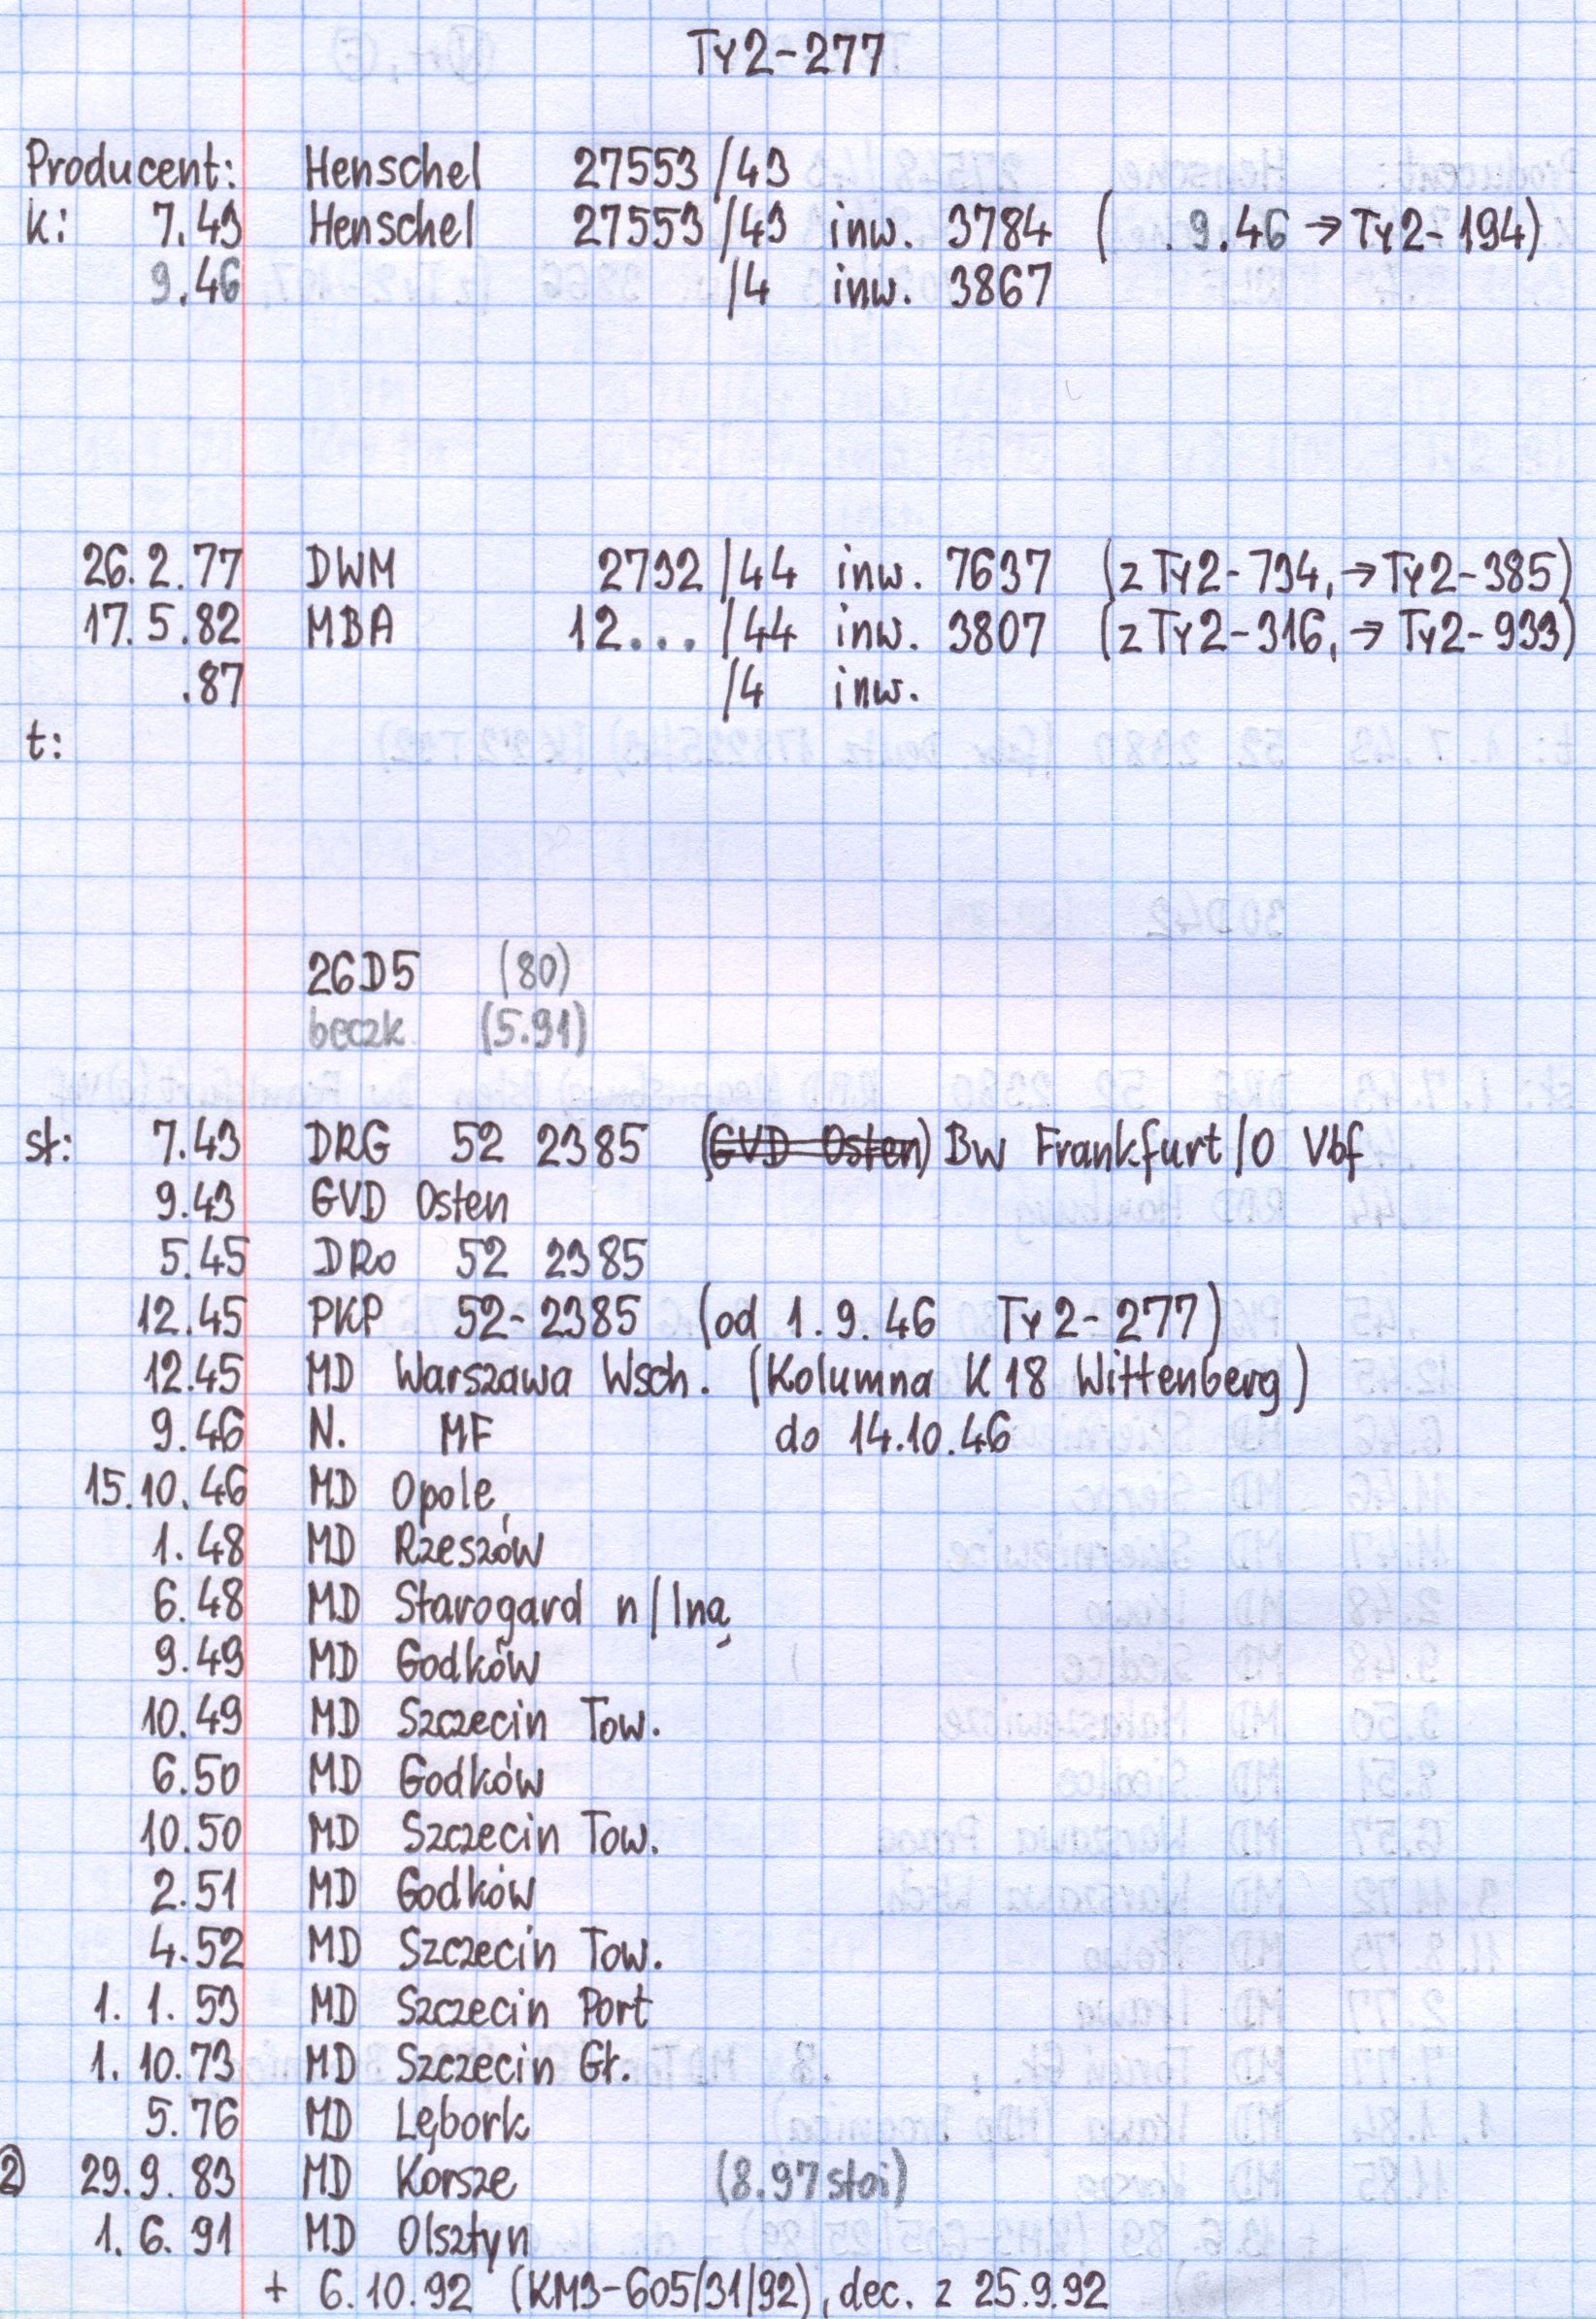 Ty2-277
Producent: Henschel 27553/43
k: 7.43 Henschel 27553/43 inw. 3784 ( . 9.46 → Ty2-194)
9.46 /4 inw. 3867
26.2.77 DWM 2732/44 inw. 7637 (z Ty2-734, → Ty2-385)
17.5.82 MBA 12.../44 inw. 3807 (z Ty2-316, → Ty2-933)
.87 /4 inw.
t:
26D5 (80)
beczk. (5.91)
st: 7.43 DRG 52 2385 (GVD Osten) Bw Frankfurt/O Vbf
9.43 GVD Osten
5.45 DRo 52 2385
12.45 PKP 52-2385 (od 1.9.46 Ty2-277)
12.45 MD Warszawa Wsch. (Kolumna K18 Wittenberg)
9.46 N. MF do 14.10.46
15.10.46 MD Opole
1.48 MD Rzeszów
6.48 MD Starogard n/Iną
9.49 MD Godków
10.49 MD Szczecin Tow.
6.50 MD Godków
10.50 MD Szczecin Tow.
2.51 MD Godków
4.52 MD Szczecin Tow.
1.1.53 MD Szczecin Port
1.10.73 MD Szczecin Gł.
5.76 MD Lębork
2 29.9.83 MD Korsze (8.97 stoi)
1.6.91 MD Olsztyn
+ 6.10.92 (KM3-605/31/92), dec. z 25.9.92